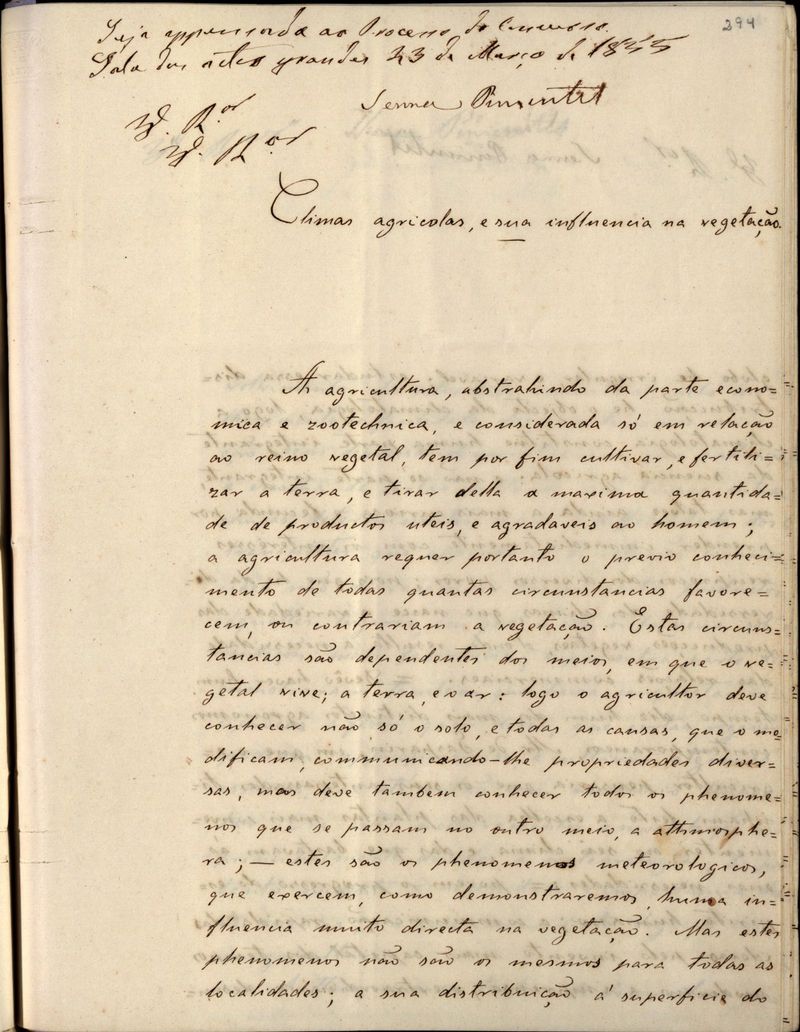 294
Seja appensada ao Processo do Concurso.
Sala dos actos grandes 23 de Março de 1855
Senna Pimentel
Climas agricolas, e sua influencia na vegetação.
A agricultura, abstrahindo da parte econo=
mica e zootechnica, e considerada só em relação
ao reino vegetal, tem por fim cultivar, e fertili=
zar a terra, e tirar della a maxima quantida=
de de productos uteis, e agradaveis ao homem;
a agricultura requer portanto o previo conheci=
mento de todas quantas circunstancias favore=
cem, ou contrariam a vegetação. Estas circuns=
tancias são dependentes dos meios, em que o ve=
getal vive; a terra, e o ar: logo o agricultor deve
conhecer não só o solo, e todas as causas, que o mo
dificam, communicando-lhe propriedades diver=
sas, mas deve tambem conhecer todos os phenome=
nos que se passam no outro meio, a athmosphe=
ra; — estes são os phenomenos meteorologicos,
que exercem, como demonstraremos, huma in=
fluencia muito directa na vegetação. Mas estes
phenomenos não são os mesmos para todas as
localidades; a sua distribuição á superficie do